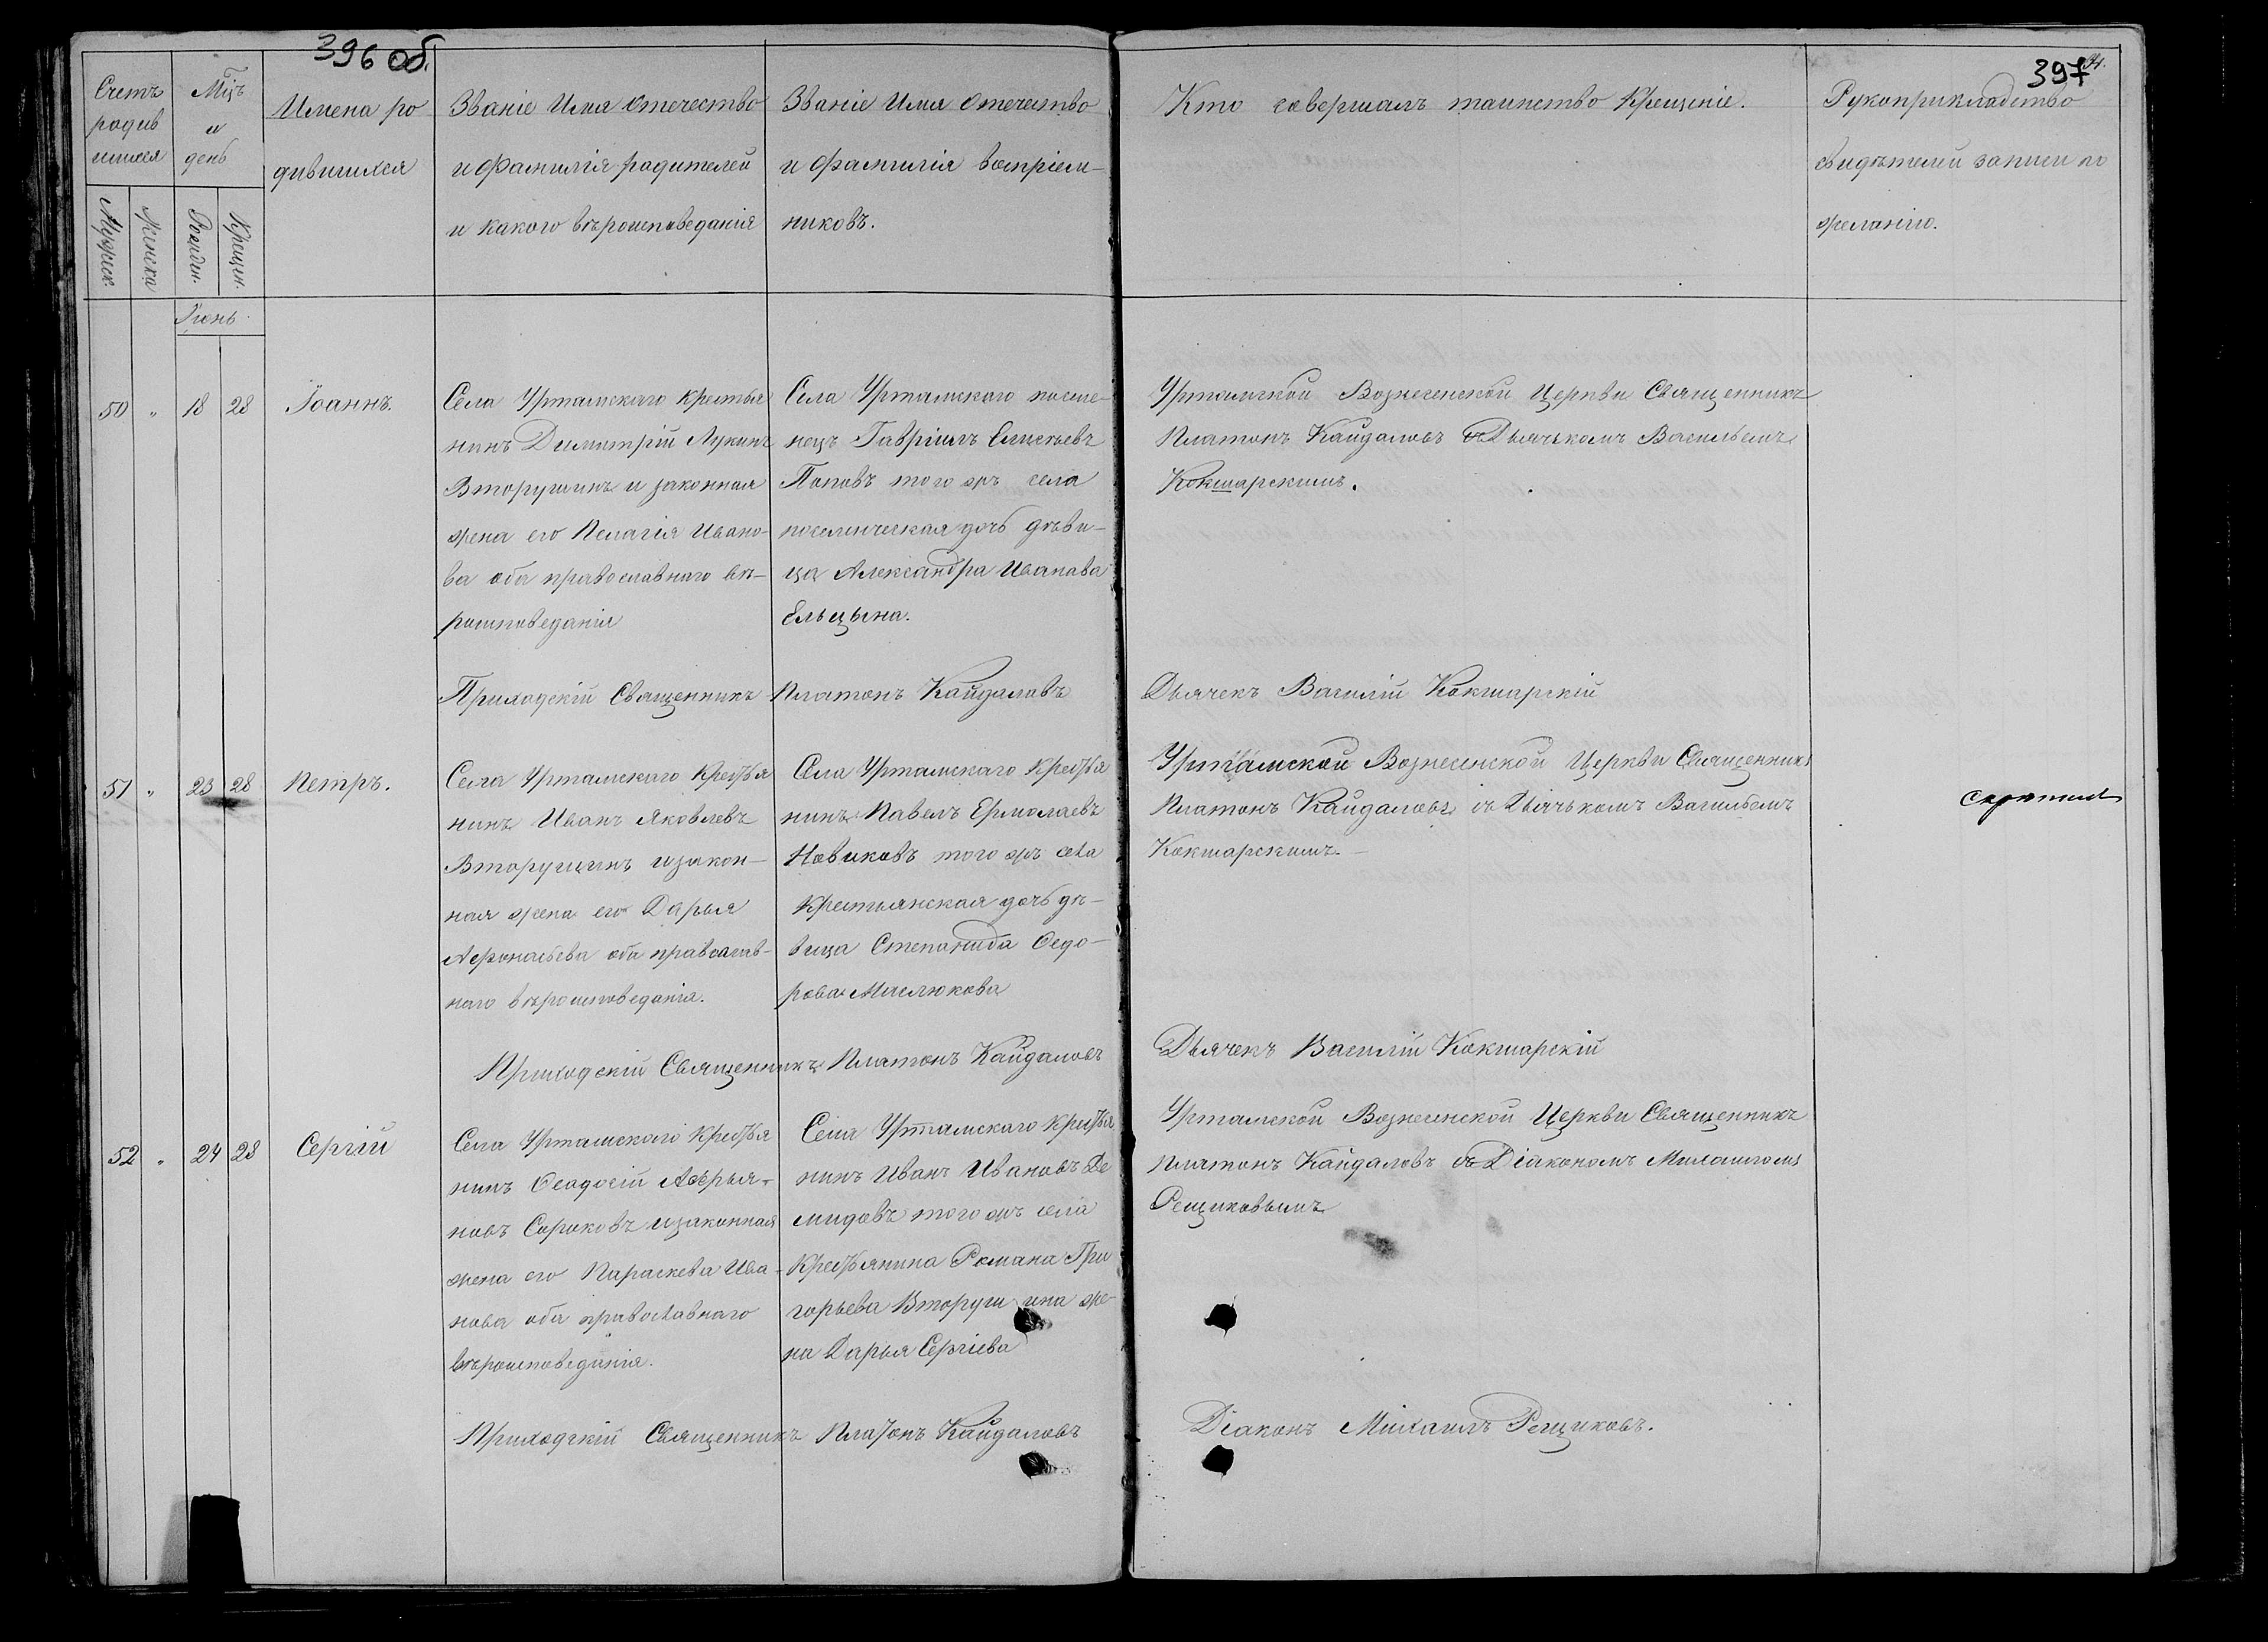 396 об.
397
Счетъ
родив
шихся
Мцъ
и
день
Имена ро
дившихся
Званіе Имя Отечество
и Фамилія родителей
и какого вѣроисповеданія
Званіе Имя Отечество
и Фамилія воспріем-
никовъ.
Кто совершалъ таинство крещеніе.
Рукоприкладство
свидѣтелей записи по
желанію.
Мужеск.
Женска
Рожден.
Крещен.
Іюнь
50 " 18 28 Іоаннъ.
Села Уртамскаго крестья
нинъ Димитрій Лукинъ
Вторушинъ и законная
жена его Пелагія Ивано-
ва оба православнаго вѣ-
роисповеданія
Села Уртамскаго поселе-
нецъ Гавріилъ Елисеевъ
Поповъ того жъ села
поселенческая дочь дѣви-
ца Александра Иванава
Ельцына.
Уртамской Вознесенской Церкви Священникъ
Платонъ Кайдаловъ съ Дьячькомъ Васильемъ
Кокшарскимъ.
Приходскій Священникъ Платонъ Кайдаловъ
Дьячекъ Василій Кокшарскій
51 " 23 28 Петръ.
Села Уртамскаго Крестья
нинъ Иванъ Яковлевъ
Вторушинъ и закон-
ная жена его Дарья
Афонасьева оба православ-
наго вѣроисповеданія.
Села Уртамскаго Крестья
нинъ Павелъ Ермолаевъ
Новиковъ того жъ села
Крестьянская дочь дѣ-
вица Степанида Ѳедо-
рова Маслюкова
Уртамской Вознесенской Церкви Священникъ
Платонъ Кайдаловъ съ Дьячькомъ Васильемъ
Кокшарскимъ.
Приходскій Священникъ Платонъ Кайдаловъ
Дьячекъ Василій Кокшарскій
52 " 24 28 Сергій
Села Уртамскаго Крестья
нинъ Ѳеодосій Аверья-
новъ Сороковъ и законная
жена его Параскева Ива-
нова оба православнаго
вѣроисповеданія.
Села Уртамскаго Крестья
нинъ Иванъ Ивановъ Де
мидовъ того жъ села
Крестьянина Романа Гри
горьева Вторушина же-
на Дарья Сергіева
Уртамской Вознесенской Церкви Священникъ
Платонъ Кайдаловъ съ Діакономъ Михаиломъ
Рещиковымъ
Приходскій Священникъ Платонъ Кайдаловъ
Діаконъ Михаилъ Рещиковъ.